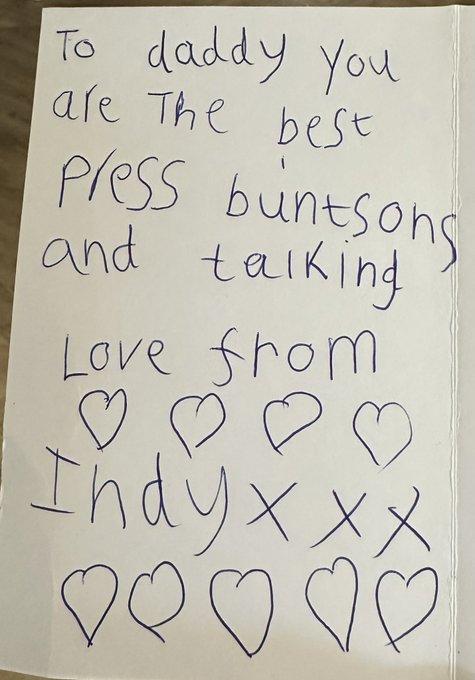 To daddy you
are The best
press buntsons
and talking
Love from
Indy x x x